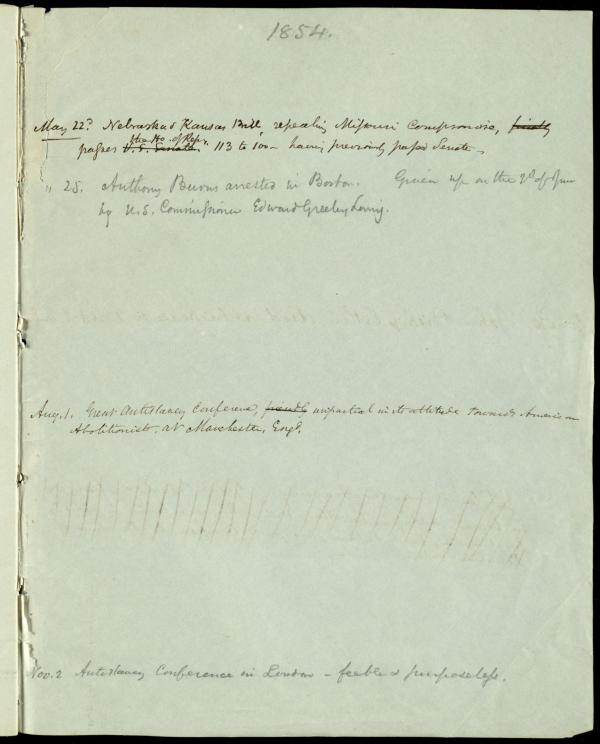 1854.
May 22d Nebraska & Kansas Bill, repealing Missouri Compromise, finally
the Ho. of Reps.
passes U.S. Senate. 113 to 100 – having previously passed Senate –
" 25. Anthony Burns arrested in Boston. Given up on the 2d of June
by U.S. Commissioner Edward Greeley Loring.
Aug. 1. Great Antislavery Conference, friendly impartial in its attitude towards American
Abolitionists, at Manchester, Engd.
Nov. 2 Antislavery Conference in London – feeble & purposeless.